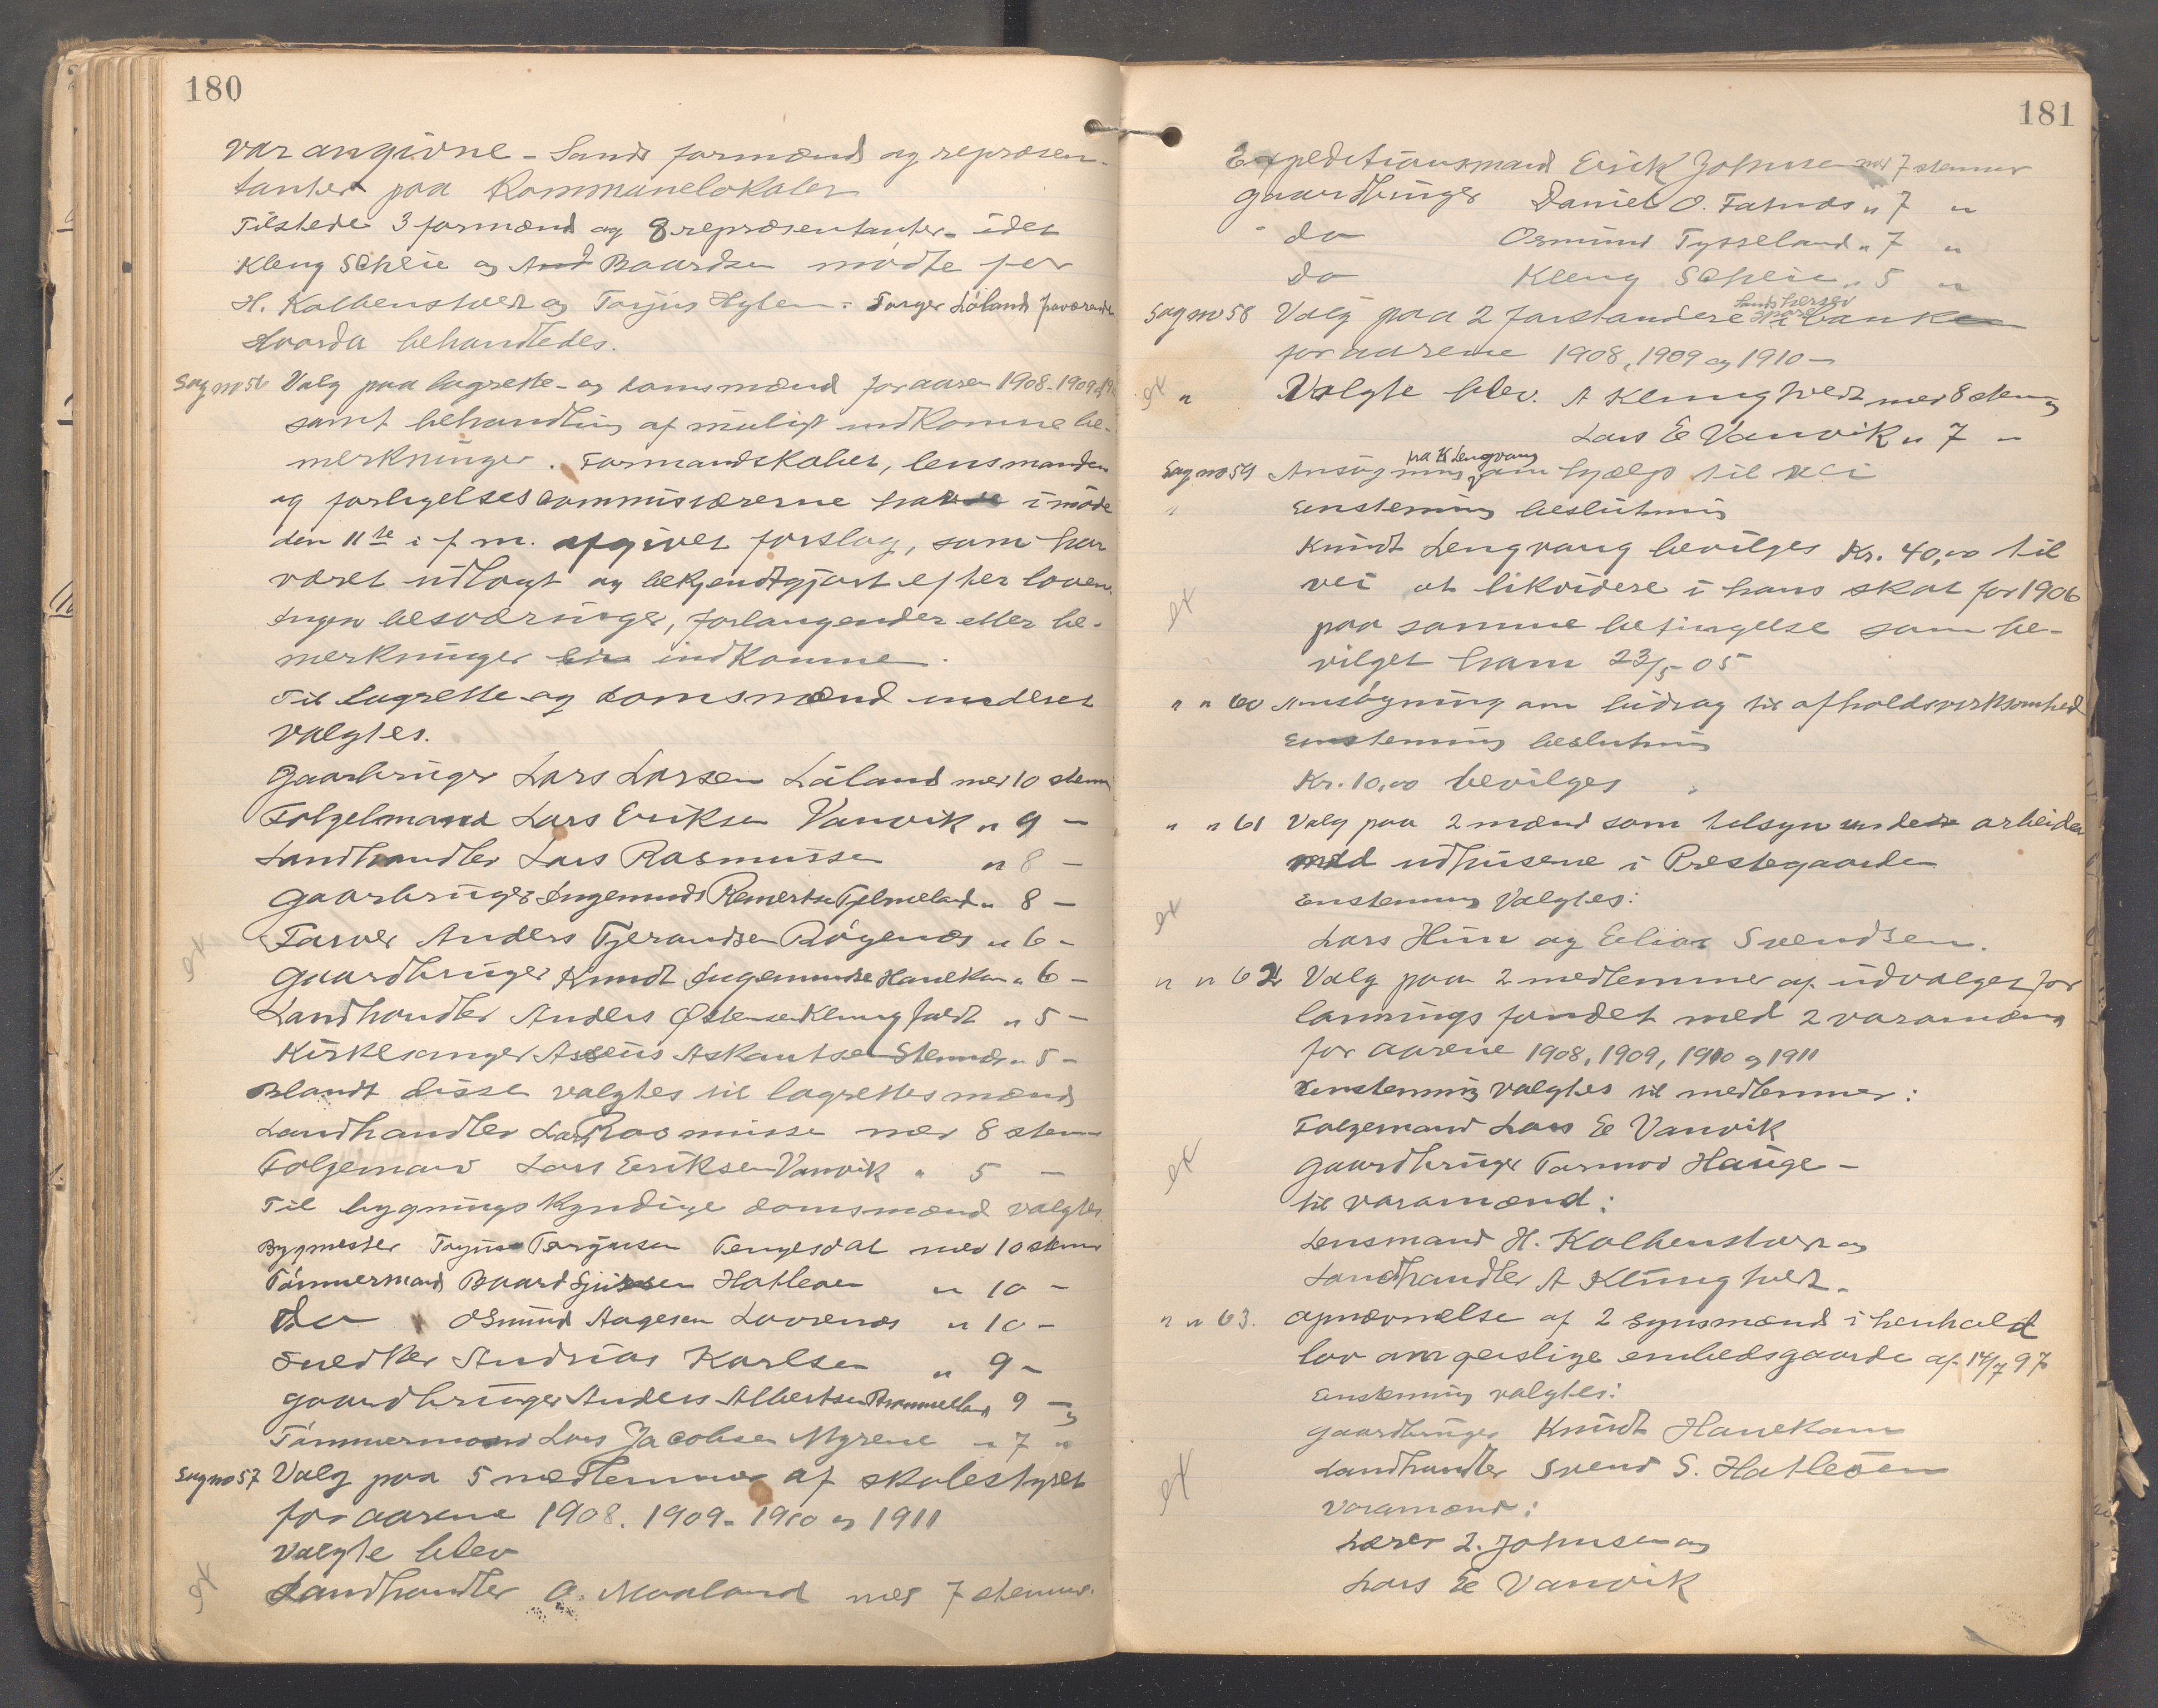 180
var angivne - Sands formænd og repræsen-
tanter paa Kommunelokalet
Tilstede 3 formænd og 8 repræsentanter - idet
Kleng Scheie og And Baardsen mødte for
H. Kolbenstvedt og Torjus Hylen - Torger Löland fraværende
Hvorda behandledes.
Sag no 56 Valg paa lagrette- og domsmænd for aaren 1908-1909 og
samt behandling af muligt indkomne be-
merkninger. Formandskabet, lensmanden
og forligelseskommissærerne havde i møde
den 11te i f. m. afgivet forslag, som har
været udlagt og bekjendtgjort efter loven.
Ingen besværinger, forlangender eller be-
merkninger er indkomne.
Til lagrette og domsmænd inderet
valgtes.
Gaarbruger Lars Larsen Löland med 10 stem
Folgelmand Lars Eriksen Vanvik " 9 -
Landhandler Lars Rasmussen " 8 -
Gaarbruger Ingemund Reinertsen Tjelmeland " 8 -
Farver Anders Tjerandsen Rögenes " 6 -
Gaardbruger Knudt Ingemundse Hanekam " 6 -
Landhandler Anders Østensen Klungtvedt " 5 -
Kirkesanger Asseus Askautsen Stennes " 5 -
Blandt disse valgtes til lagrettesmænd
Landhandler Lars Rasmusse med 8 stem
Folgemand Lars Eriksen Vanvik " 5 -
Til bygningskyndige domsmænd valgtes.
Bygmester Torjus Torjusen Tengesdal med 10 stem
Tömmermand Baard Sjursen Hatleöen " 10 -
Do Osmund Aagesen Lovrenes " 10 -
Snedker Andreas Karlsen " 9 -
gaardbruger Anders Albertsen Brommeland 9 - og
Tömmermand Lars Jacobsen Myrene " 7 "
Sag no 57 Valg paa 5 medlemmer af skolestyret
for aarene 1908. 1909- 1910 og 1911
Valgte blev
Landhandler O. Maaland med 7 stemmer.
181
Expeditionsmand Erick Johnsen med 7 stemmer
gaardbruger Daniel O. Fatnes " 7 "
do Osmund Tysseland " 7 "
Do Kleng Scheie " 5 "
Sands herreds
spare
Sag no 58 Valg paa 2 forstandere til banken
for aarene 1908, 1909 og 1910 -
ex " Valgte blev. A Klungtvedt med 8 stem og
Lars E Vanvik " 7 -
fra K Lengvang
Sag no 59 Ansøgning om hjælp til vei
" Enstemmig beslutning
Knudt Lengvang bevilges Kr. 40,00 til
ex vei at likvidere i hans skat for 1906
paa samme betingelse som be-
vilget ham 23/5 - 05
" " 60 Ansögning om bidrag til afholdsvirksomhed
Enstemmig beslutning
Kr. 10,00 bevilges
" " 61 Valg paa 2 mænd som tilsyn under arbeidet
med udhusene i Prestegaarden
ex Enstemmig Valgtes:
Lars Hiim og Elias Svendsen.
" " 62 Valg paa 2 medlemmer af udvalget for
lønningsfondet med 2 varamænd
for aarene 1908, 1909, 1910 og 1911
Enstemmig valgtes til medlemmer:
Folgemand Lars E Vanvik
ex Gaardbruger Tormod Hauge -
til varamænd:
Lensmand H. Kolbenstvedt og
Landhandler A Klungtvedt.
" " 63. Opnævnelse af 2 synsmænd i henhold t
lov om geistlige embedsgaarde af 14/7 97
Enstemmig valgtes:
gaardbruger Knudt Hanekam
ex Landhandler Svend S. Hatleöen
Varamænd:
Lærer L. Johnsen og
Lars E Vanvik